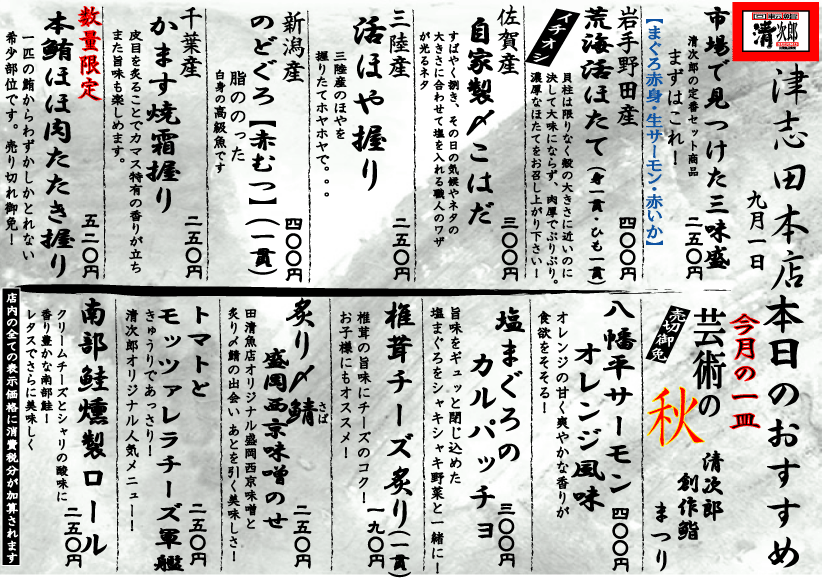 回転鮨
清次郎
津志田本店本日のおすすめ
九月一日
市場で見つけた三味盛
二五〇円
まずはこれ！
清次郎の定番セット商品
【まぐろ赤身・生サーモン・赤いか】
岩手野田産
荒海活ほたて（身一貫・ひも一貫）
四〇〇円
イチオシ
貝柱は限りなく殻の大きさに近いのに
決して大味にならず、肉厚でぷりぷり。
濃厚なほたてをお召し上がり下さい！
佐賀産
自家製〆こはだ
三〇〇円
すばやく捌き、その日の気候やネタの
大きさに合わせて塩を入れる職人のワザ
が光るネタ
三陸産
活ほや握り
二五〇円
三陸産のほやを
握りたてホヤホヤで。。。
新潟産
のどぐろ【赤むつ】（一貫）
四〇〇円
脂ののった
白身の高級魚です
千葉産
かます焼霜握り
二五〇円
皮目を炙ることでカマス特有の香りが立ち
また旨味も楽しめます。
数量限定
本鮪ほほ肉たたき握り
五二〇円
一匹の鮪からわずかしかとれない
希少部位です。売り切れ御免！
今月の一皿
芸術の
秋
売切御免
清次郎
創作鮨
まつり
八幡平サーモン
オレンジ風味
四〇〇円
オレンジの甘く爽やかな香りが
食欲をそそる！
塩まぐろの
カルパッチョ
三〇〇円
旨味をギュッと閉じ込めた
塩まぐろをシャキシャキ野菜と一緒に！
椎茸チーズ炙り（一貫）
一九〇円
椎茸の旨味にチーズのコク！
お子様にもオススメ！
炙り〆鯖
さば
盛岡西京味噌のせ
二五〇円
田清魚店オリジナル盛岡西京味噌と
炙り〆鯖の出会い あとを引く美味しさ！
トマトと
モッツァレラチーズ軍艦
二五〇円
きゅうりであっさり！
清次郎オリジナル人気メニュー！
南部鮭燻製ロール
二五〇円
クリームチーズとシャリの酸味に
香り豊かな南部鮭！
レタスでさらに美味しく
店内の全ての表示価格に消費税分が加算されます